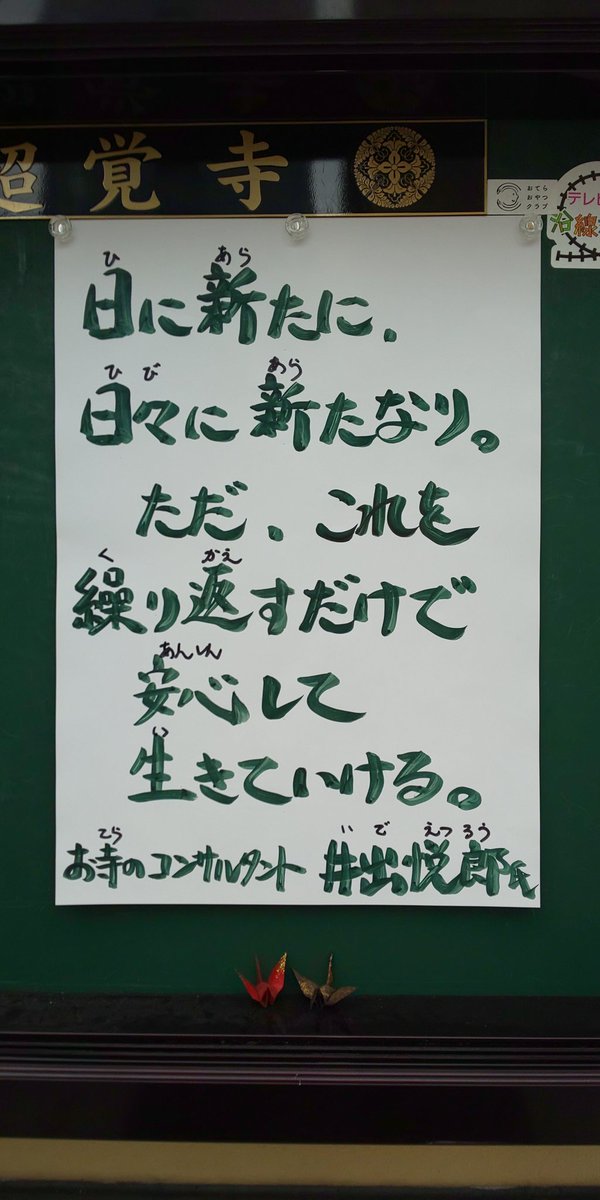 超覚寺
おてら
おやつ
クラブ
テレビ
沿線
ひ あら
日に新たに、
ひび あら
日々に新たなり。
ただ、これを
く かえ
繰り返すだけで
あんしん
安心して
い
生きていける。
てら いで えつろう
お寺のコンサルタント 井出悦郎氏